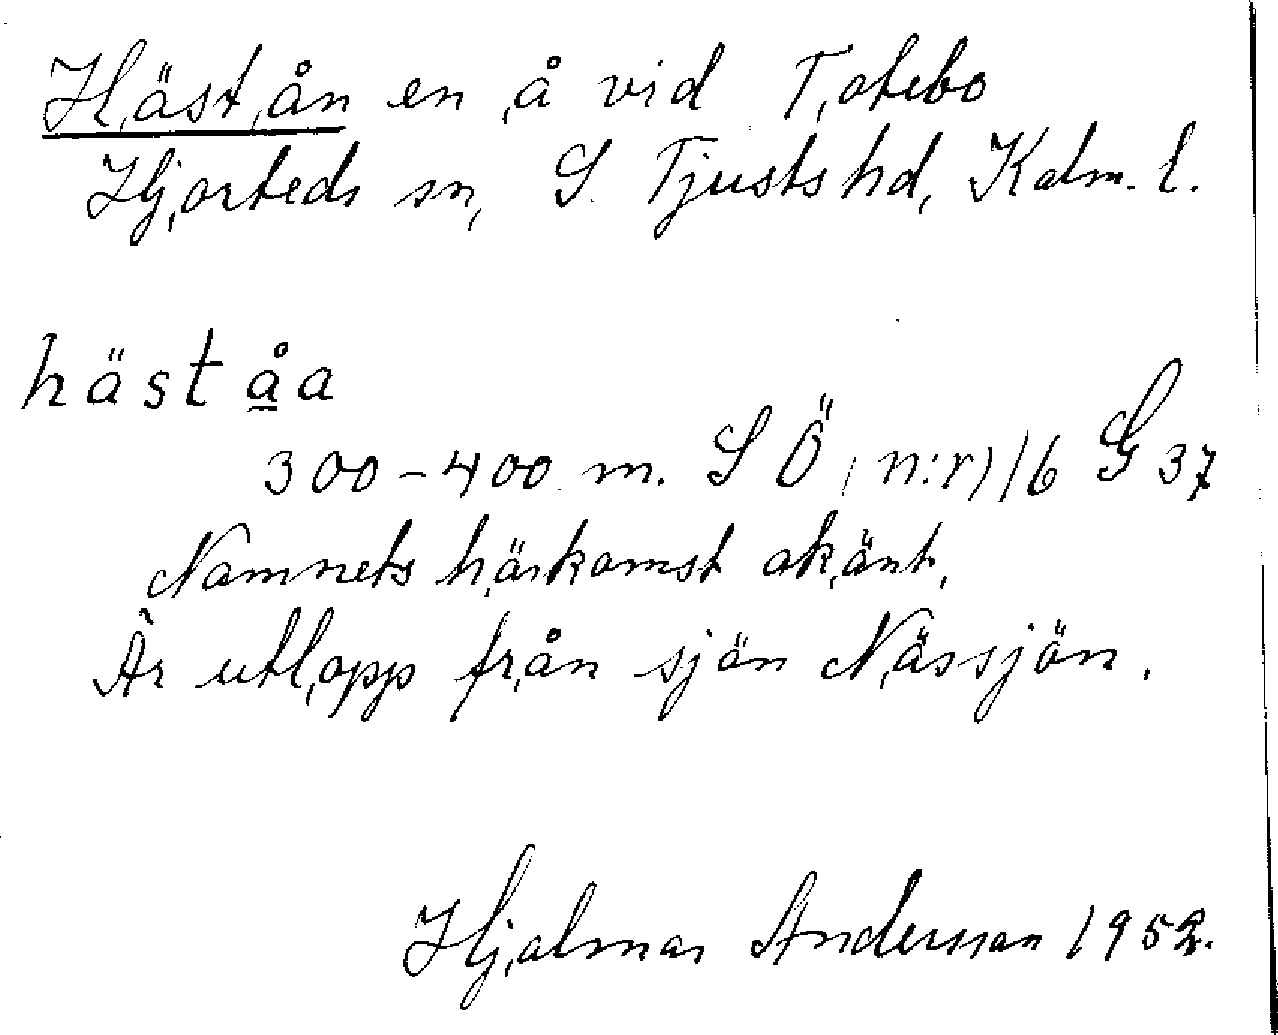 Hästån en å vid Totebo
Hjorteds sn, S. Tjusts hd, Kalm. l.
häståa
300-400 m. S Ö, n:r) 16 G 37
Namnets härkomst okänt.
Är utlopp från sjön Nässjön.
Hjalmar Andersson 1952.